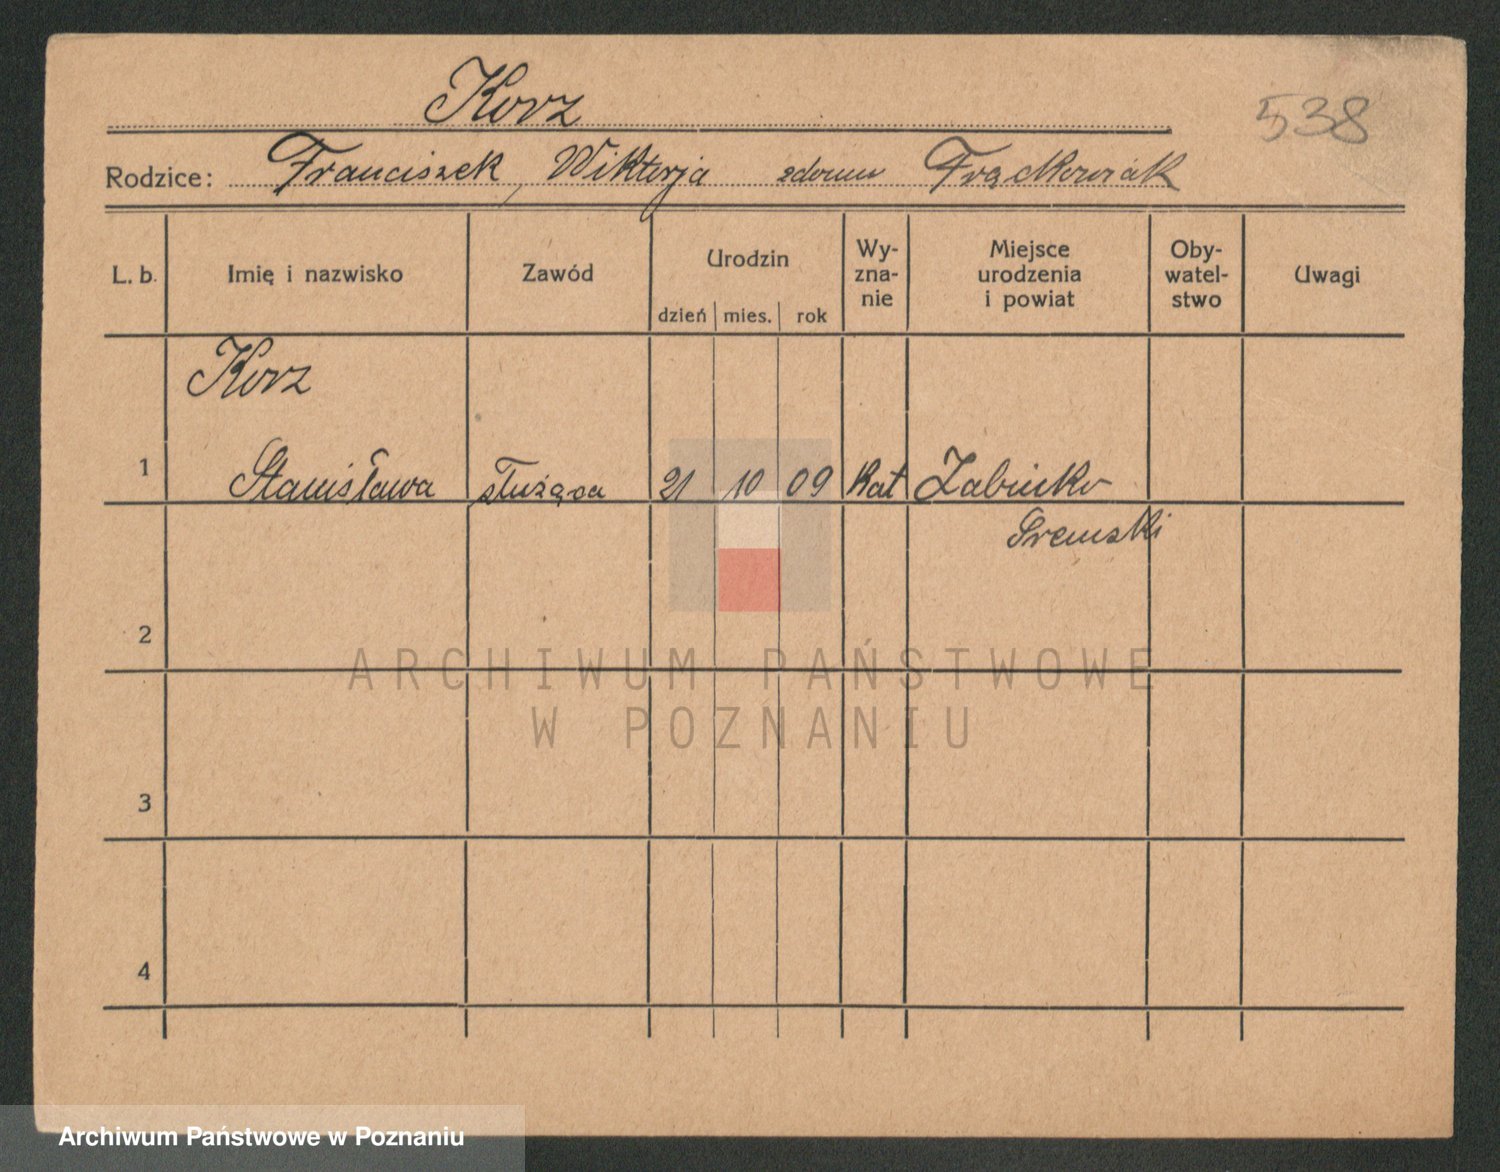 Korz
538
Rodzice: Franciszek, Wiktorja zdomu Frąckowiak
L. b. Imię i nazwisko Zawód Urodzin dzień mies. rok Wy-zna-nie Miejsce urodzenia i powiat Oby-watel-stwo Uwagi
Korz
1 Stanisława służąca 21 10 09 Kat Żabinko
Śremski
2
ARCHIWUM PAŃSTWOWE
W POZNANIU
3
4
Archiwum Państwowe w Poznaniu